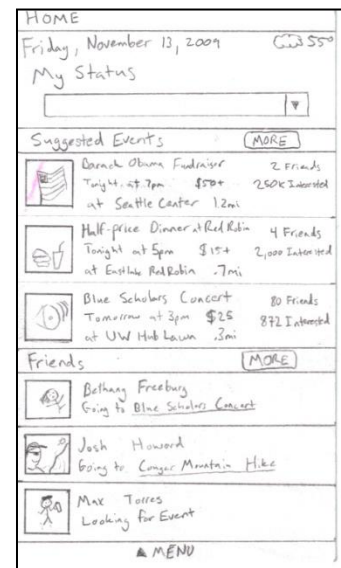 HOME
Friday, November 13, 2009 55°
My Status
Suggested Events MORE
Barack Obama Fundraiser 2 Friends
Tonight at 7pm $50+ 250k Interested
at Seattle Center 1.2mi
Half-price Dinner at Red Robin 4 Friends
Tonight at 5pm $15+ 2,000 Interested
at Eastlake Red Robin .7mi
Blue Scholars Concert 80 Friends
Tomorrow at 3pm $25 872 Interested
at UW Hub Lawn .3mi
Friends MORE
Bethany Freeburg
Going to Blue Scholars Concert
Josh Howard
Going to Conger Mountain Hike
Max Torres
Looking for Event
▲ MENU